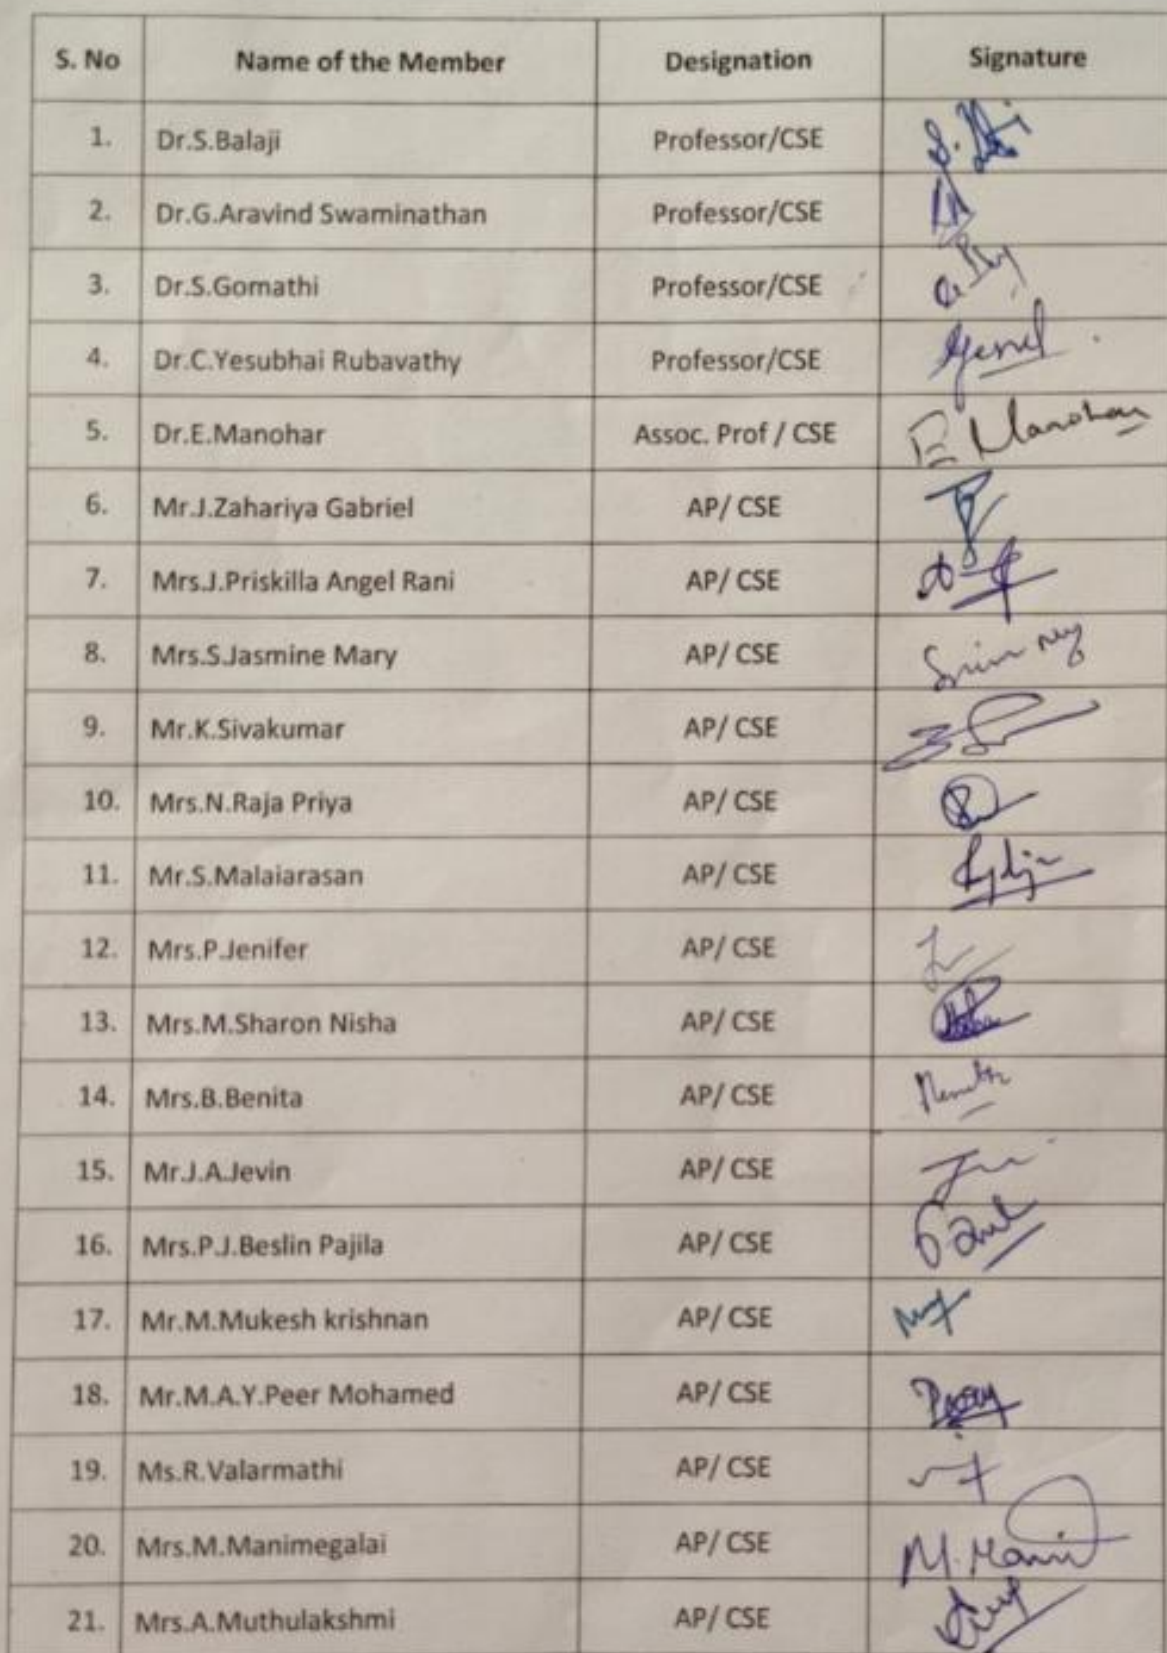 S. No Name of the Member Designation Signature
1. Dr.S.Balaji Professor/CSE
2. Dr.G.Aravind Swaminathan Professor/CSE
3. Dr.S.Gomathi Professor/CSE
4. Dr.C.Yesubhai Rubavathy Professor/CSE
5. Dr.E.Manohar Assoc. Prof / CSE E Manohar
6. Mr.J.Zahariya Gabriel AP/ CSE
7. Mrs.J.Priskilla Angel Rani AP/ CSE
8. Mrs.S.Jasmine Mary AP/ CSE
9. Mr.K.Sivakumar AP/ CSE
10. Mrs.N.Raja Priya AP/ CSE
11. Mr.S.Malaiarasan AP/ CSE
12. Mrs.P.Jenifer AP/ CSE
13. Mrs.M.Sharon Nisha AP/ CSE
14. Mrs.B.Benita AP/ CSE
15. Mr.J.A.Jevin AP/ CSE
16. Mrs.P.J.Beslin Pajila AP/ CSE
17. Mr.M.Mukesh krishnan AP/ CSE
18. Mr.M.A.Y.Peer Mohamed AP/ CSE
19. Ms.R.Valarmathi AP/ CSE
20. Mrs.M.Manimegalai AP/ CSE
21. Mrs.A.Muthulakshmi AP/ CSE